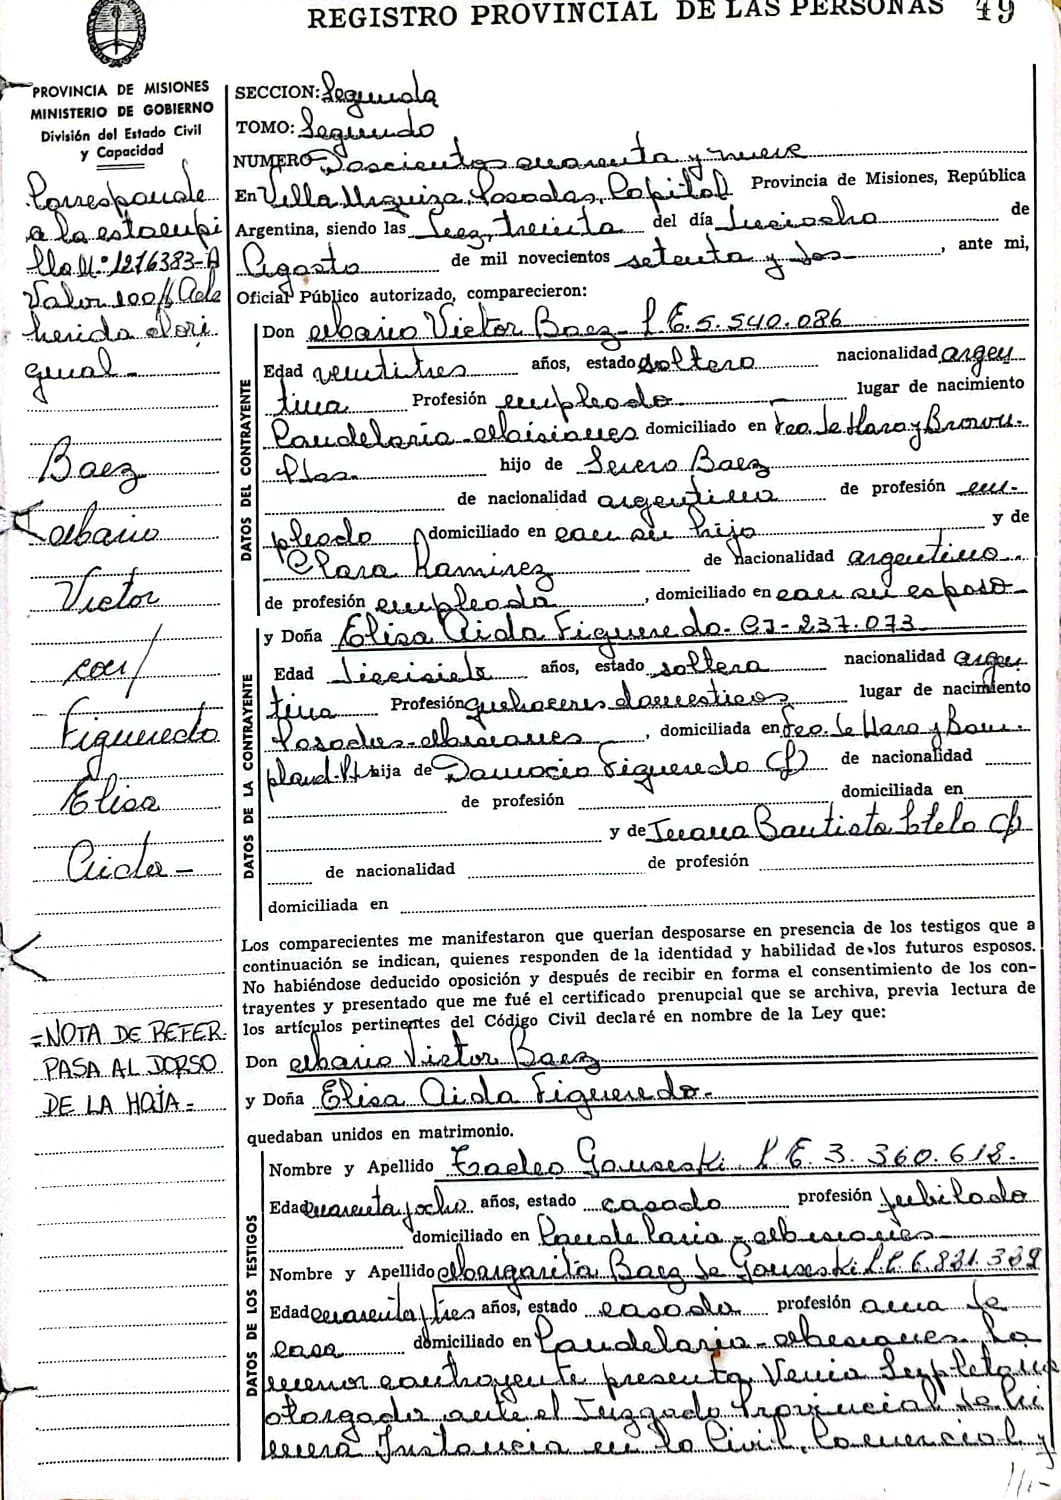 REGISTRO PROVINCIAL DE LAS PERSONAS 49
PROVINCIA DE MISIONES
MINISTERIO DE GOBIERNO
División del Estado Civil
y Capacidad
Corresponde
a la estampi
lla N.° 1276383-A
Valor 100/ Ade
herida al ori
ginal -
Baez
Mario
Victor
con/
Figueredo
Elisa
Aida -
=NOTA DE REFER.
PASA AL DORSO
DE LA HOJA =
SECCION: Segunda
TOMO: Segundo
NUMERO Doscientos cuarenta y nueve
En Villa Urquiza, Posadas, Capital Provincia de Misiones, República
Argentina, siendo las diez, treinta del día dieciocho de
Agosto de mil novecientos setenta y dos , ante mi,
Oficial Público autorizado, comparecieron:
DATOS DEL CONTRAYENTE
Don Mario Victor Baez - L.E. 5.540.086
Edad veintitres años, estado soltero nacionalidad argen
tina Profesión empleado lugar de nacimiento
Candelaria - Misiones domiciliado en Fco. de Haro y Brown.
Pdas. hijo de Severo Baez
de nacionalidad argentino de profesión em-
pleado domiciliado en con su hijo y de
Clara Ramirez de nacionalidad argentina
de profesión empleada , domiciliado en con su esposo -
DATOS DE LA CONTRAYENTE
y Doña Elisa Aida Figueredo - CI - 237.073
Edad diecisiete años, estado soltera nacionalidad argen
tina Profesión quehaceres domesticos lugar de nacimiento
Posadas - Misiones , domiciliada en Fco. de Haro y Bom.
pland. hija de Damacio Figueredo (f) de nacionalidad
de profesión domiciliada en
y de Juana Bautista Sotelo (f)
de nacionalidad de profesión
domiciliada en
Los comparecientes me manifestaron que querían desposarse en presencia de los testigos que a
continuación se indican, quienes responden de la identidad y habilidad de los futuros esposos.
No habiéndose deducido oposición y después de recibir en forma el consentimiento de los con-
trayentes y presentado que me fué el certificado prenupcial que se archiva, previa lectura de
los artículos pertinentes del Código Civil declaré en nombre de la Ley que:
Don Mario Victor Baez
y Doña Elisa Aida Figueredo -
quedaban unidos en matrimonio.
DATOS DE LOS TESTIGOS
Nombre y Apellido Tadeo Gauseski L.E. 3.360.618 -
Edad cuarenta y ocho años, estado casado profesión jubilado
domiciliado en Candelaria - Misiones
Nombre y Apellido Margarita Baez de Gauseski
Edad cuarenta y tres años, estado casada profesión ama de
casa domiciliado en Candelaria - Misiones. La
menor contrayente presenta Venia Supletoria
otorgada ante el Juzgado Provincial de Pri
mera Instancia en lo Civil, Comercial y
//-